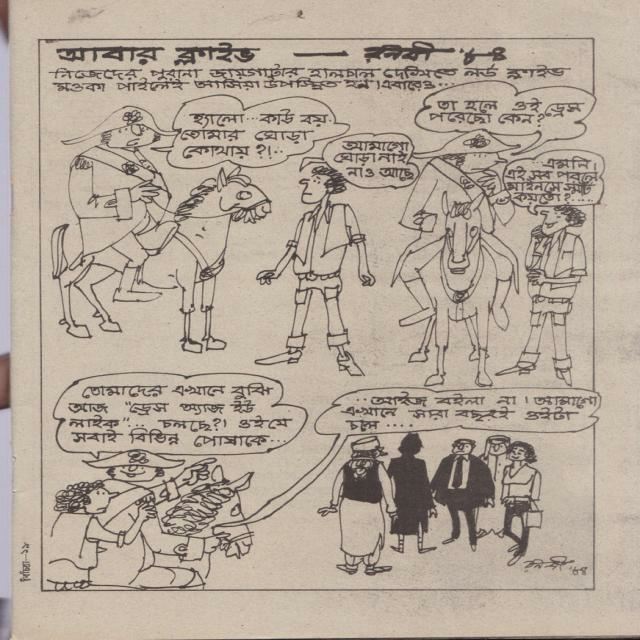 আবার ক্লাইভ — রনবী '৮৪
নিজেদের পুরানা জায়গাটার হালচাল দেখিতে লর্ড ক্লাইভ
মওকা পাইলেই আসিয়া উপস্থিত হন। এবারেও...
হ্যালো... কাউ বয়
তোমার ঘোড়া
কোথায় ?!...
আমাগো
ঘোড়া নাই
নাও আছে
তা হলে ওই ড্রেস
পরেছো কেন ?
...এমনি।
এই সব পরলে
মাইনসে স্মার্ট
কয়তো ?...
তোমাদের এখানে বুঝি
আজ "ড্রেস অ্যাজ ইউ
লাইক"... চলছে ?! ওই যে
সবাই বিভিন্ন পোষাকে...
...আইজ বইলা না। আমাগো
এখানে সারা বছরই ওইটা
চলে ....
রনবী '৮৪
বিচিত্রা—১৯